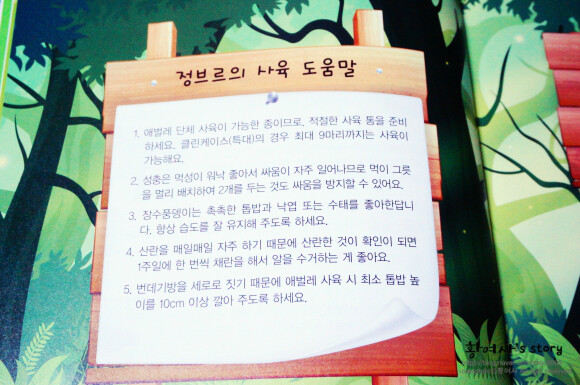 정브르의 사육 도움말
1. 애벌레 단체 사육이 가능한 종이므로, 적절한 사육 통을 준비
하세요. 클린케이스(특대)의 경우 최대 9마리까지는 사육이
가능해요.
2. 성충은 먹성이 워낙 좋아서 싸움이 자주 일어나므로 먹이 그릇
을 멀리 배치하여 2개를 두는 것도 싸움을 방지할 수 있어요.
3. 장수풍뎅이는 촉촉한 톱밥과 낙엽 또는 수태를 좋아한답니
다. 항상 습도를 잘 유지해 주도록 하세요.
4. 산란을 매일매일 자주 하기 때문에 산란한 것이 확인이 되면
1주일에 한 번씩 채란을 해서 알을 수거하는 게 좋아요.
5. 번데기방을 세로로 짓기 때문에 애벌레 사육 시 최소 톱밥 높
이를 10cm 이상 깔아 주도록 하세요.
황여사's story